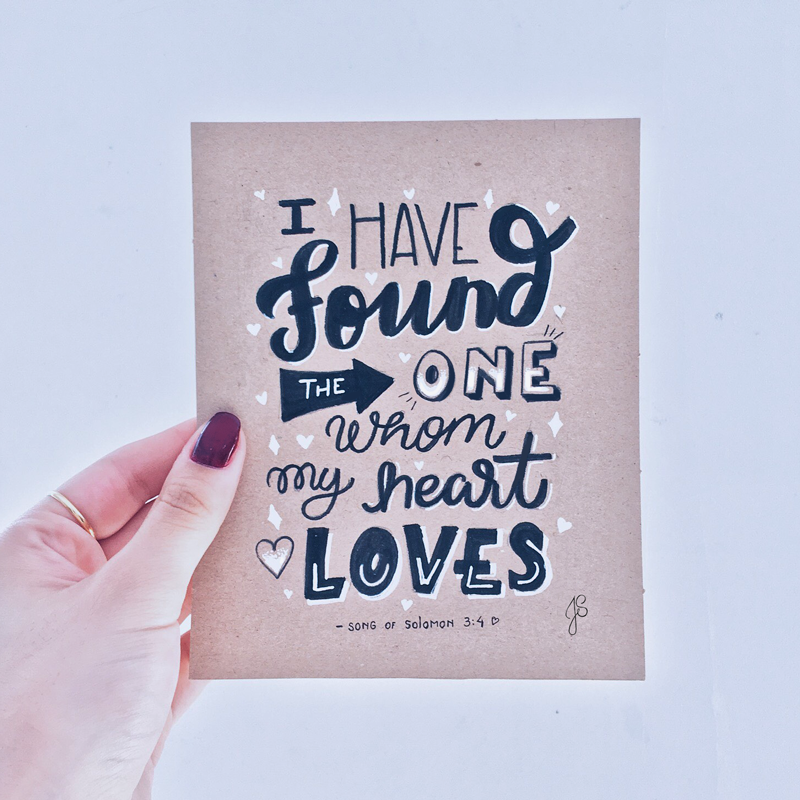 I HAVE
found
THE ONE
whom
my heart
LOVES
- SONG OF SOLOMON 3:4
JS